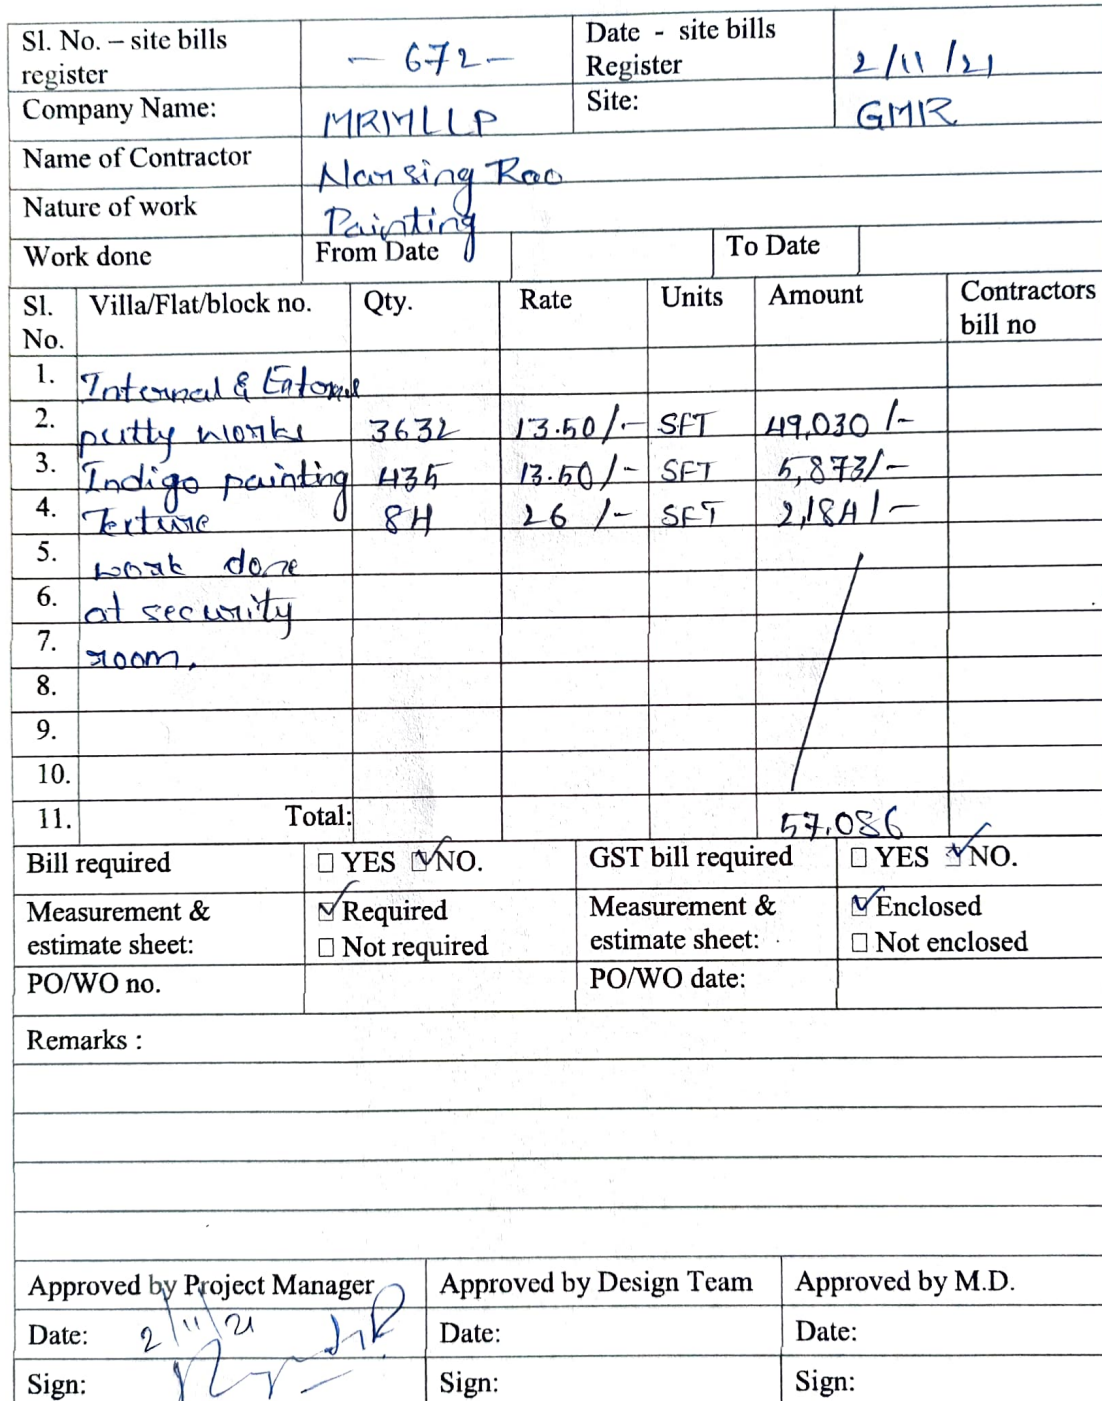 Sl. No. – site bills register - 672 - Date - site bills Register 2/11/21
Company Name: MRMLLP Site: GMR
Name of Contractor Narsing Rao
Nature of work Painting
Work done From Date To Date
Sl. No. Villa/Flat/block no. Qty. Rate Units Amount Contractors bill no
1. Internal & External
2. putty works 3632 13.50/- SFT 49,030/-
3. Indigo painting 435 13.50/- SFT 5,873/-
4. Texture 84 26/- SFT 2,184/-
5. work done
6. at security
7. room.
8.
9.
10.
11. Total: 57,086
Bill required YES NO. GST bill required YES NO.
Measurement & estimate sheet: Required Not required Measurement & estimate sheet: Enclosed Not enclosed
PO/WO no. PO/WO date:
Remarks :
Approved by Project Manager Approved by Design Team Approved by M.D.
Date: 2/11/21 Date: Date:
Sign: Sign: Sign: